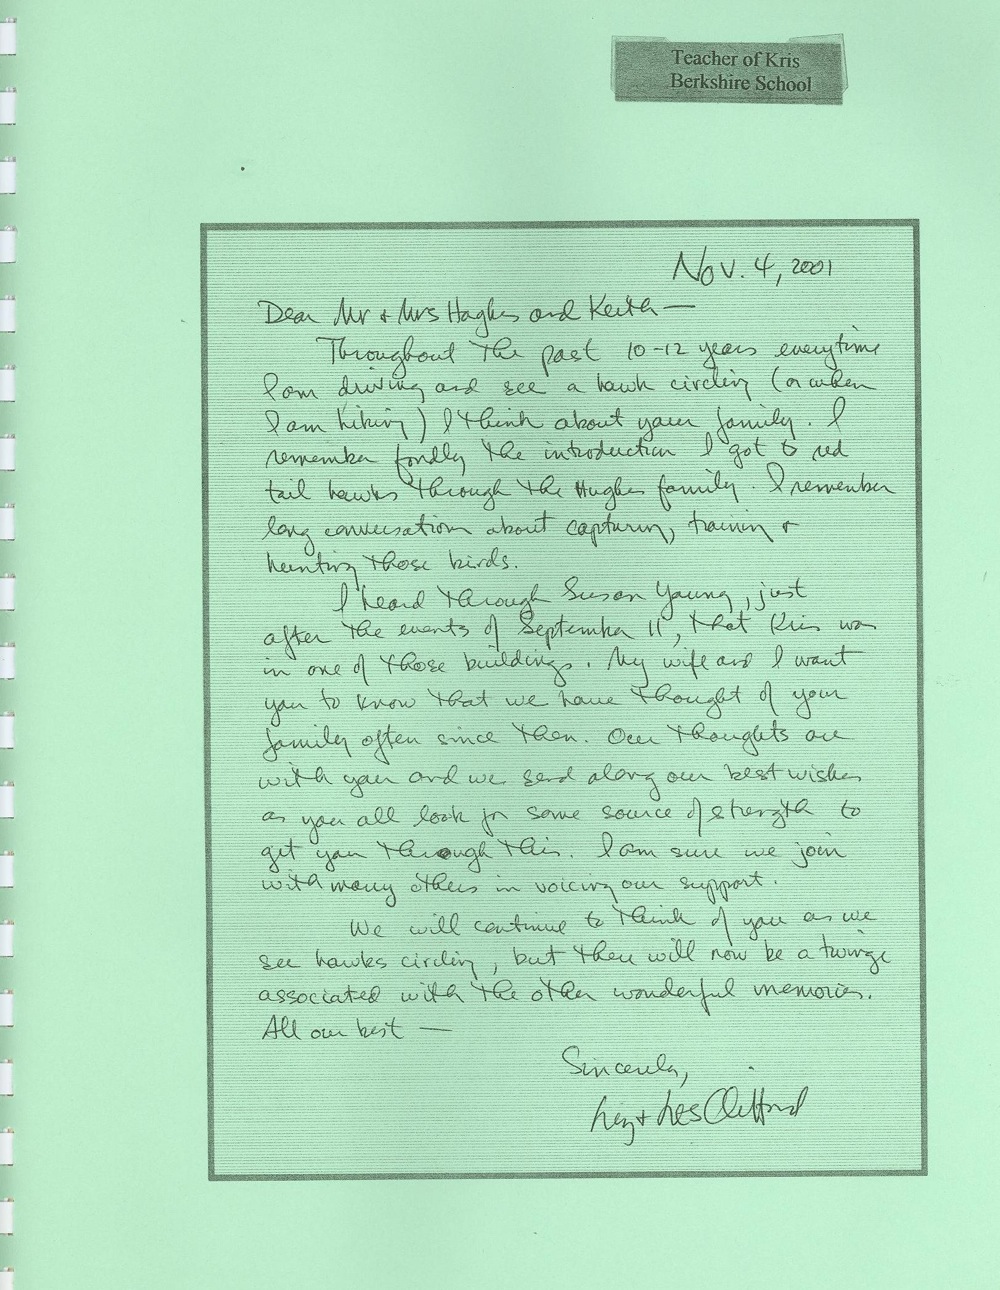 Teacher of Kris
Berkshire School
Nov. 4, 2001
Dear Mr + Mrs Hughes and Keith —
Throughout the past 10-12 years everytime
I am driving and see a hawk circling (or when
I am hiking) I think about your family. I
remember fondly the introduction I got to red
tail hawks through the Hughes family. I remember
long conversations about capturing, training +
hunting those birds.
I heard through Susan Young, just
after the events of September 11, that Kris was
in one of those buildings. My wife and I want
you to know that we have thought of your
family often since then. Our thoughts are
with you and we send along our best wishes
as you all look for some source of strength to
get you through this. I am sure we join
with many others in voicing our support.
We will continue to think of you as we
see hawks circling, but there will now be a twinge
associated with the other wonderful memories.
All our best —
Sincerely,
+ Les Clifford